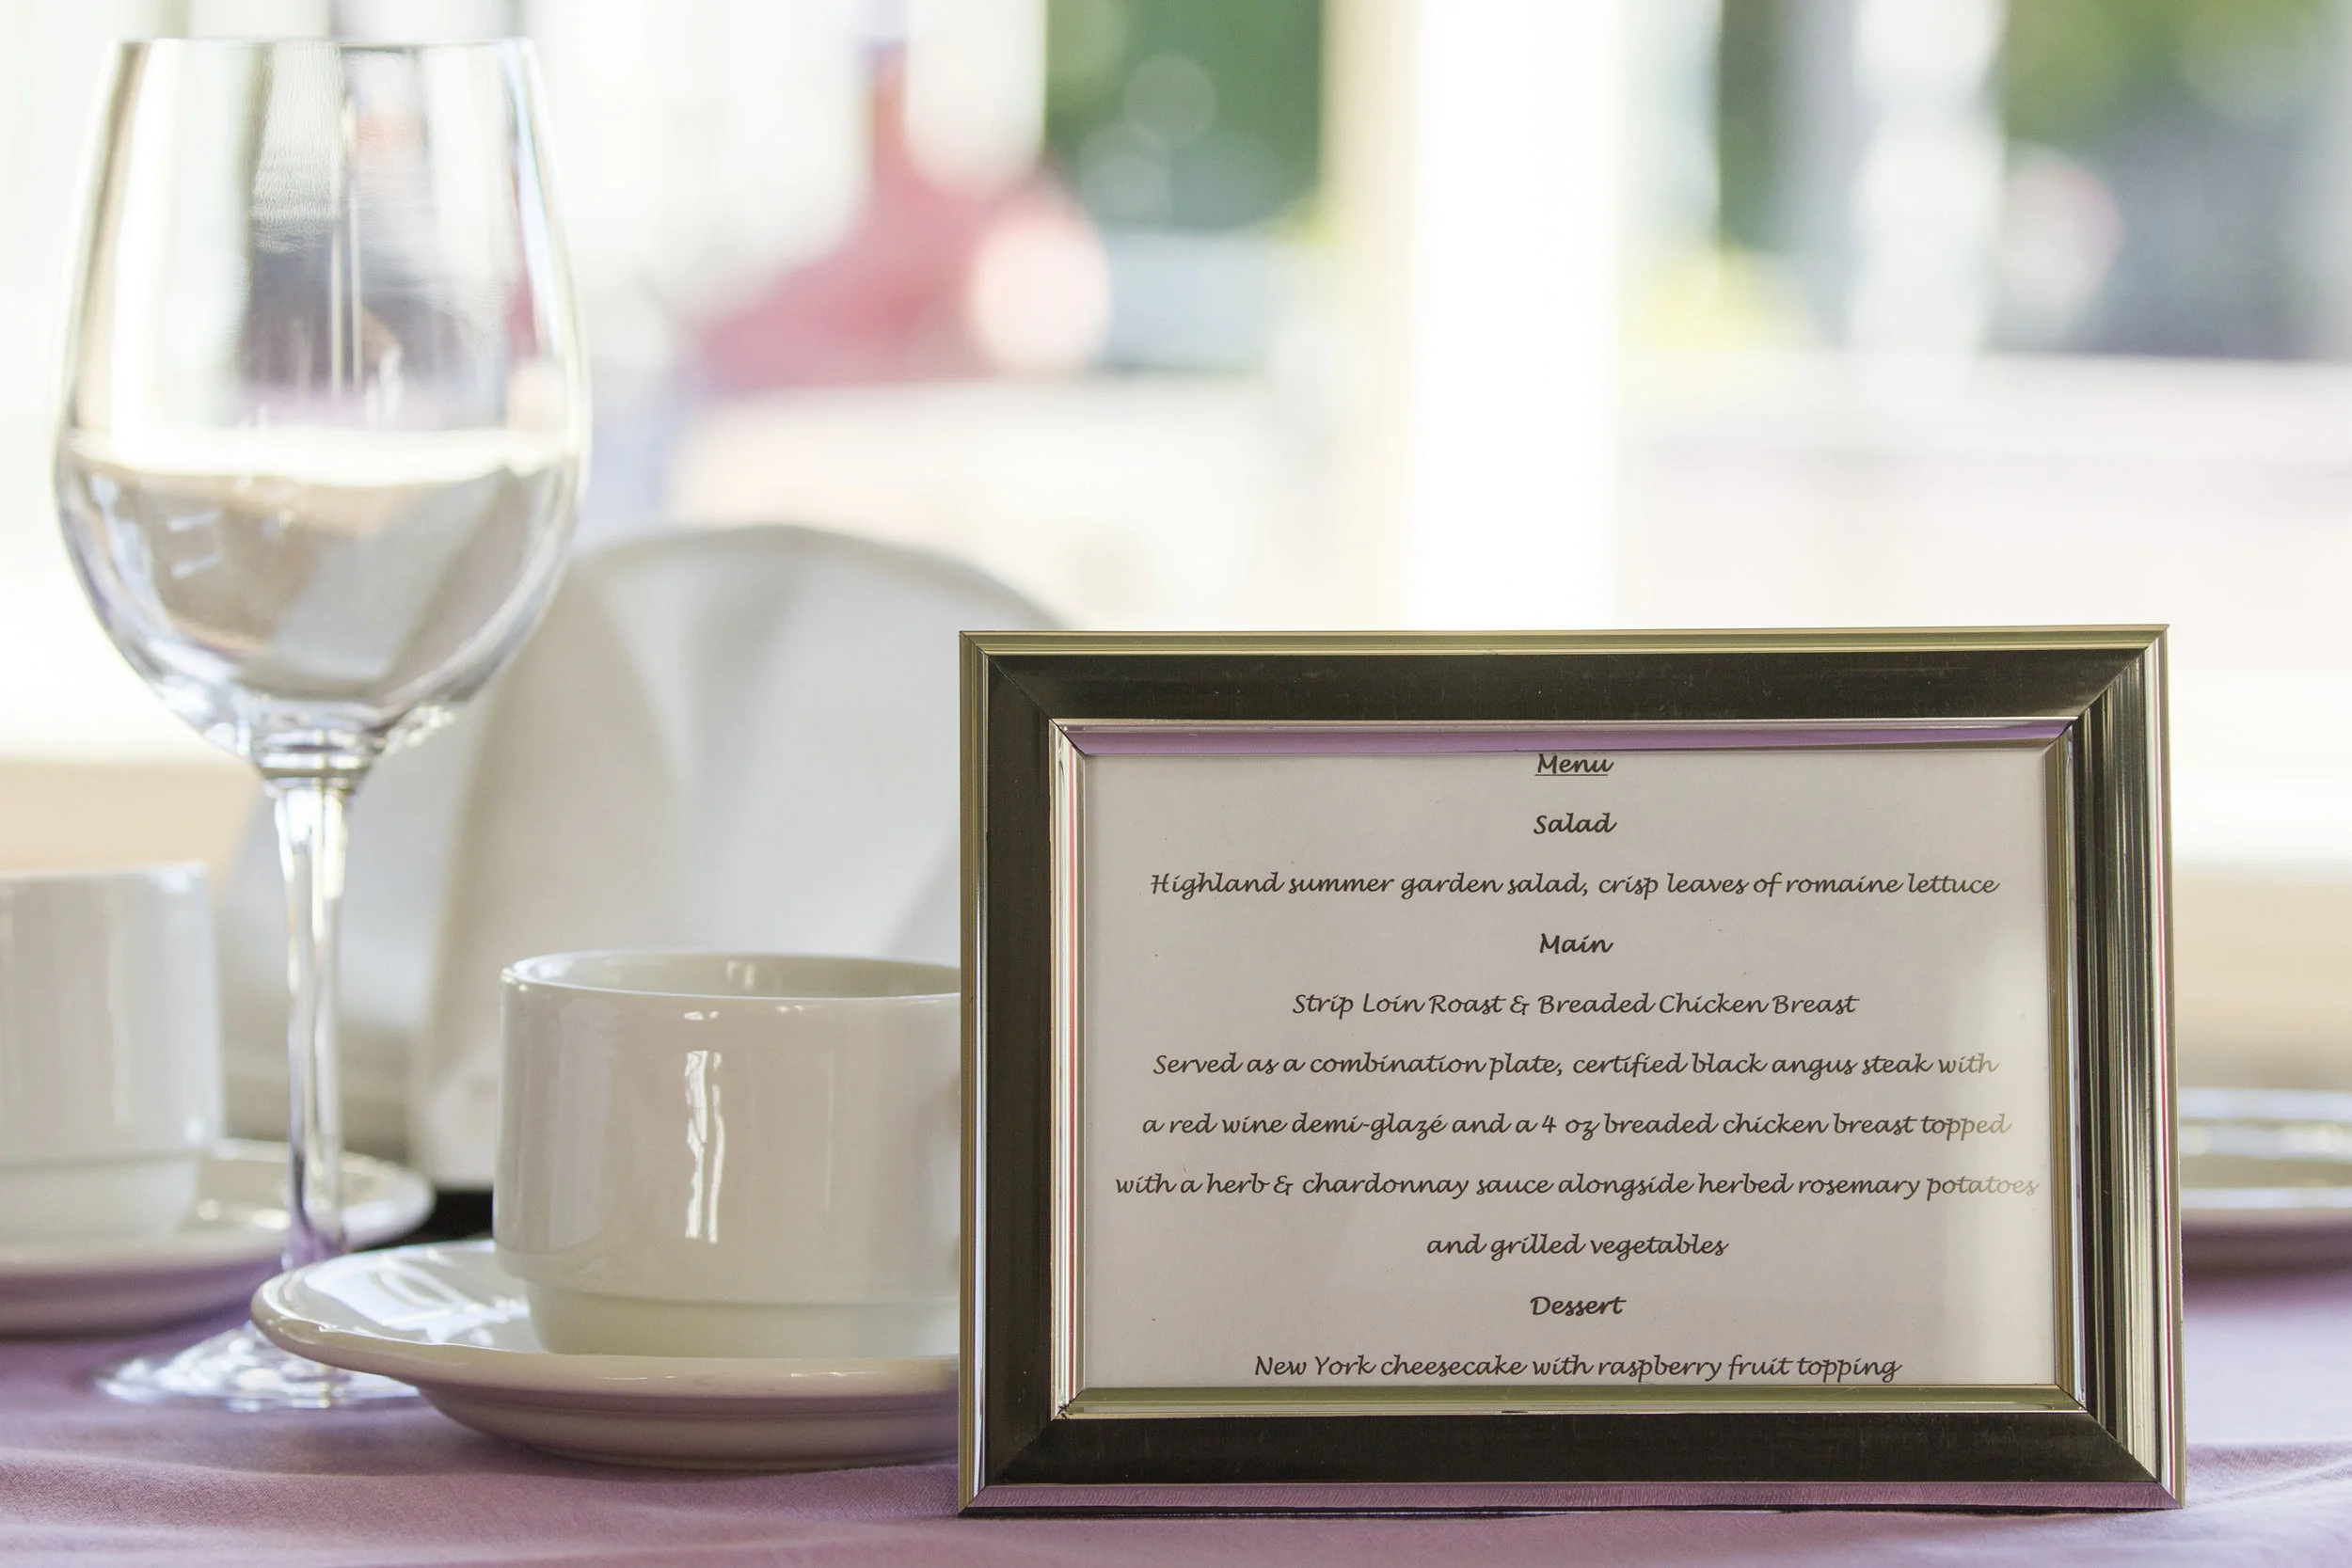 Menu
Salad
Highland summer garden salad, crisp leaves of romaine lettuce
Main
Strip Loin Roast & Breaded Chicken Breast
Served as a combination plate, certified black angus steak with
a red wine demi-glazé and a 4 oz breaded chicken breast topped
with a herb & chardonnay sauce alongside herbed rosemary potatoes
and grilled vegetables
Dessert
New York cheesecake with raspberry fruit topping